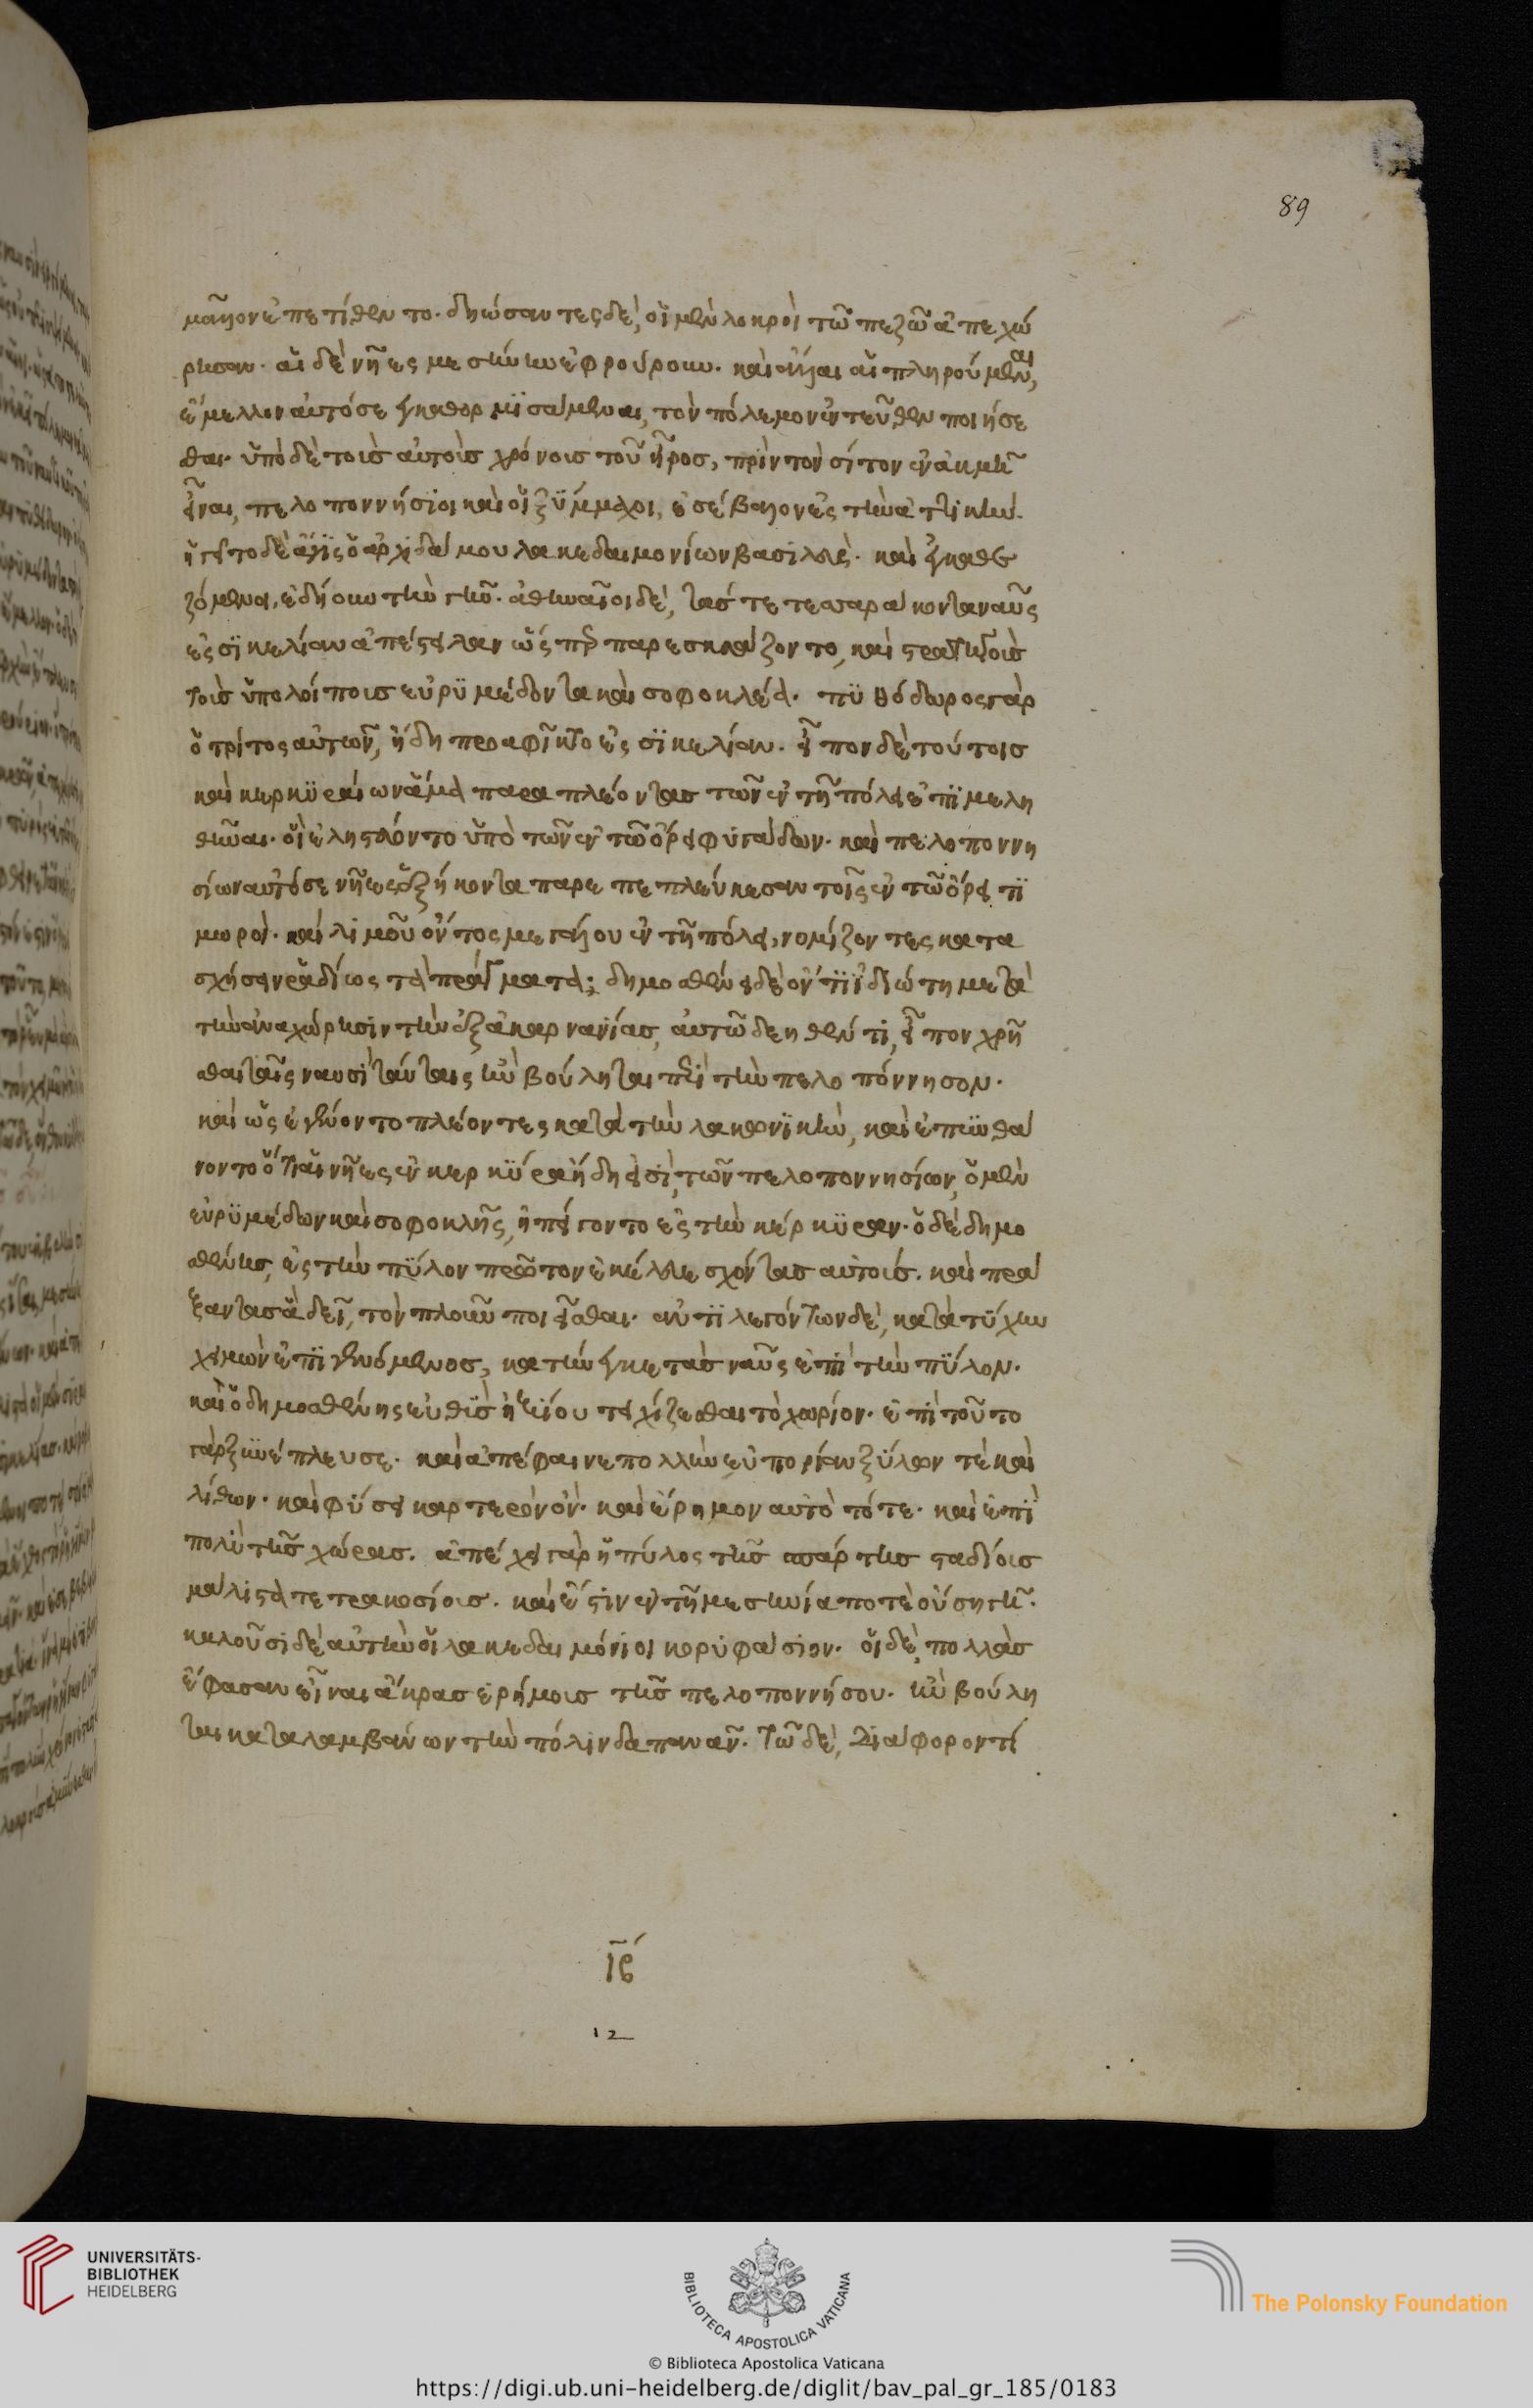 89
μᾶλλον ἐπετίθεντο. δηώσαντες δὲ, οἱ μὲν λοκροὶ τῶ πεζῶ ἀπεχώ
ρησαν. αἱ δὲ νῆες μεσσήνην ἐφρούρουν. καὶ ἄλλαι αἱ πληρούμεναι,
ἔμελλον αὐτόσε ἐγκαθορμισάμεναι, τὸν πόλεμον ἐντεῦθεν ποιήσε
σθαι. ὑπὸ δὲ τοὺς αὐτοὺς χρόνους τοῦ ἦρος, πρὶν τὸν σῖτον ἐν ἀκμῆ
εἶναι, πελοποννήσιοι καὶ οἱ ξύμμαχοι, ἐσέβαλον ἐς τὴν ἀττικήν.
ἡγεῖτο δὲ ἆγις ὁ ἀρχιδάμου λακεδαιμονίων βασιλεύς. καὶ ἐγκαθε
ζόμενοι, ἐδήουν τὴν γῆν. ἀθηναῖοι δὲ, τάς τε τεσσαράκοντα ναῦς
ἐς σικελίαν ἀπέστειλαν ὥσπερ παρεσκευάζοντο, καὶ στρατηγοὺς
τοὺς ὑπολοίπους εὐρυμέδοντα καὶ σοφοκλέα. πυθόδωρος γὰρ
ὁ τρίτος αὐτῶν, ἤδη προαφῖκτο ἐς σικελίαν. εἶπον δὲ τούτοις
καὶ κερκυραίων ἅμα παραπλέοντας τῶν ἐν τῆ πόλει ἐπιμελη
θῆναι. οἳ ἐληστεύοντο ὑπὸ τῶν ἐν τῶ ὄρει φυγάδων. καὶ πελοποννη
σίων αὐτόσε νῆες ἑξήκοντα παρεπεπλεύκεσαν τοῖς ἐν τῶ ὄρει τι
μωροὶ. καὶ λιμοῦ ὄντος μεγάλου ἐν τῆ πόλει, νομίζοντες κατα
σχήσειν ῥαδίως τὰ πράγματα; δημοσθένει δὲ ὄντι ἰδιώτη μετὰ
τὴν ἀναχώρησιν τὴν ἐξ ἀκαρνανίας, αὐτῶ δεηθέντι, εἶπον χρῆ
σθαι ταῖς ναυσὶ ταύταις ἢν βούληται περὶ τὴν πελοπόννησον.
καὶ ὡς ἐγένοντο πλέοντες κατὰ τὴν λακωνικὴν, καὶ ἐπυνθά
νοντο ὅτι αἱ νῆες ἐν κερκύρα ἤδη εἰσὶ, τῶν πελοποννησίων, ὁ μὲν
εὐρυμέδων καὶ σοφοκλῆς, ἠπείγοντο ἐς τὴν κέρκυραν. ὁ δὲ δημο
σθένης, ἐς τὴν πύλον πρῶτον ἐκέλευε σχόντας αὐτοὺς. καὶ πρά
ξαντας ἃ δεῖ, τὸν πλοῦν ποιεῖσθαι. ἀντιλεγόντων δὲ, κατὰ τύχην
χειμὼν ἐπιγενόμενος, κατήνεγκε τὰς ναῦς ἐπὶ τὴν πύλον.
καὶ ὁ δημοσθένης εὐθὺς ἠξίου τειχίζεσθαι τὸ χωρίον. ἐπὶ τοῦτο
γὰρ ξυνέπλευσε. καὶ ἀπέφαινε πολλὴν εὐπορίαν ξύλων τὲ καὶ
λίθων. καὶ φύσει καρτερὸν ὂν. καὶ ἐρῆμον αὐτὸ τότε. καὶ ἐπὶ
πολὺ τῆς χώρας. ἀπέχει γὰρ ἡ πύλος τῆς σπάρτης σταδίοις
μάλιστα τετρακοσίοις. καὶ ἔστιν ἐν τῆ μεσσηνία ποτὲ οὔση γῆ.
καλοῦσι δὲ αὐτὴν οἱ λακεδαιμόνιοι κορυφάσιον. οἱ δὲ, πολλὰς
ἔφασαν εἶναι ἄκρας ἐρήμοις τῆς πελοποννήσου. ἢν βούλη
ται καταλαμβάνων τὴν πόλιν δαπανᾶν. τῶ δὲ, διάφορόν τι
ιβ
12
UNIVERSITÄTS-
BIBLIOTHEK
HEIDELBERG
BIBLIOTECA APOSTOLICA VATICANA
The Polonsky Foundation
© Biblioteca Apostolica Vaticana
https://digi.ub.uni-heidelberg.de/diglit/bav_pal_gr_185/0183